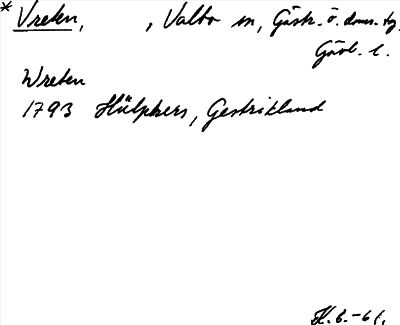 * Vreten, , Valbo sn, Gästr. ö. doms. dg.
Gävl. l.
Wreten
1793 Hülphers, Gestrikland
H.B.-61.